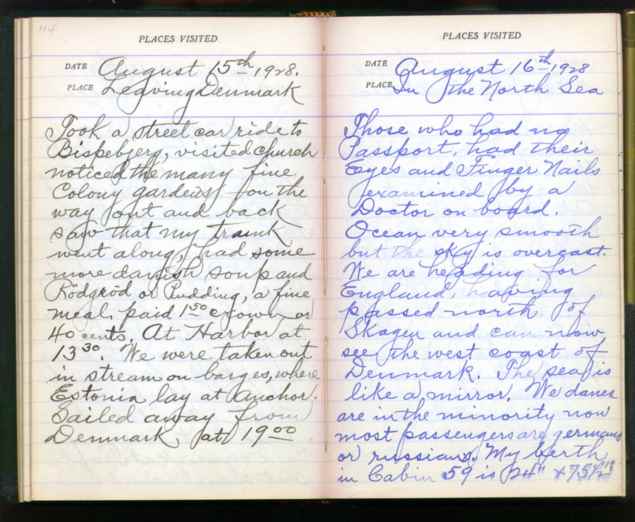 114
PLACES VISITED
DATE August 15th 1928.
PLACE Leaving Denmark
Took a street car ride to
Bispebjerg, visited church
noticed the many fine
Colony gardens on the
way out and back
saw that my trunk
went along, had some
more danish soup and
Rödgröd or Pudding, a fine
meal, paid 1 50 crown or
40 cents. At Harbor at
13 30. We were taken out
in stream on barges, where
Estonia lay at anchor.
Sailed away from
Denmark at 19 00
PLACES VISITED
DATE August 16th 1928
PLACE In the North Sea
Those who had no
Passport, had their
Eyes and Finger Nails
examined by a
Doctor on board.
Ocean very smooth
but the sky is overcast.
We are heading for
England, having
passed north of
Skagen and can now
see the west coast of
Denmark. The sea is
like a mirror. We danes
are in the minority now
most passengers are germans
or russians. My berth
in Cabin 59 is 24"